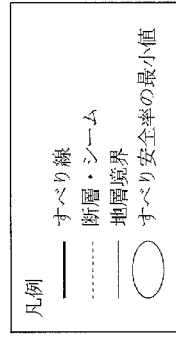 凡例
すべり線
断層・シーム
地層境界
すべり安全率の最小値